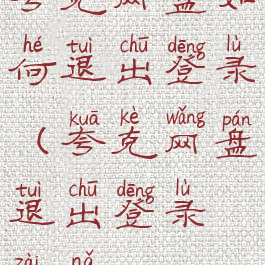 夸克网盘如
hé tuì chū dēng lù
何退出登录
kuā kè wǎng pán
（夸克网盘
tuì chū dēng lù
退出登录
zài nǎ